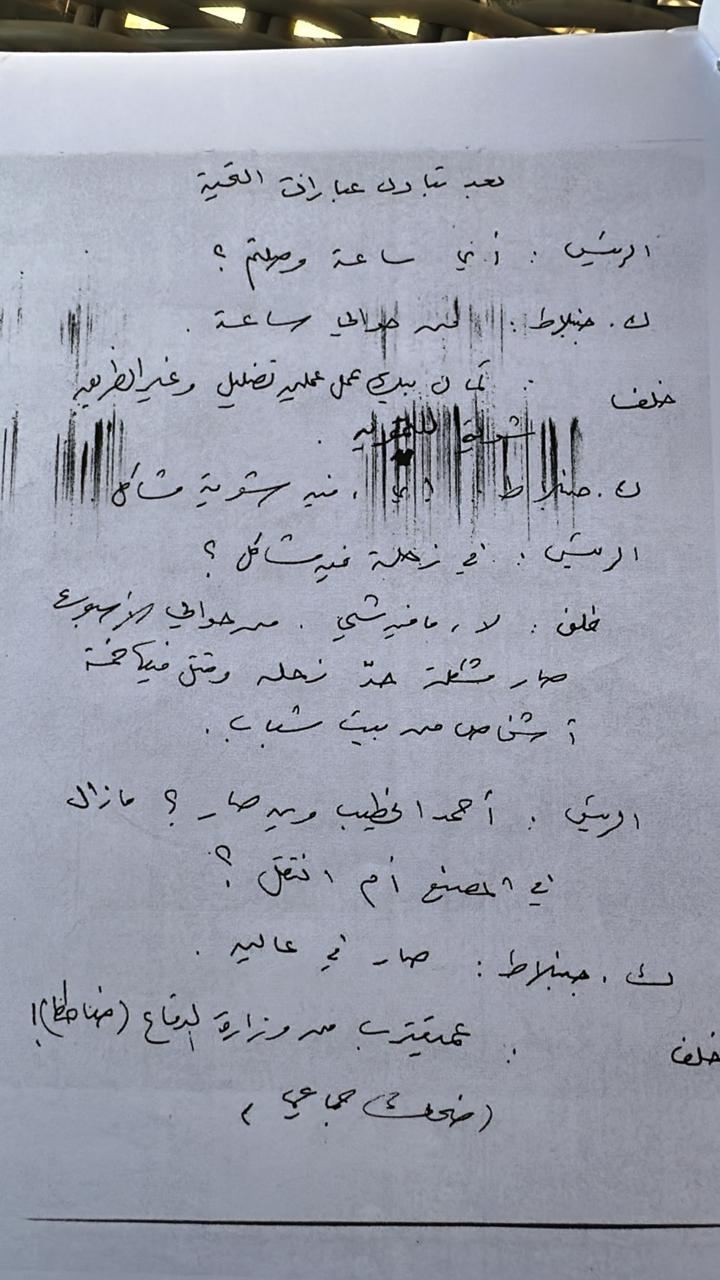 بعد تبادل عبارات التحية
الرئيس : أي ساعة وصلتم ؟
ك . جنبلاط : من حوالي ساعة .
خلف : كان بيدي عمل عملية تضليل وغير الطريق
شوية
ك . جنبلاط : إي ، فيه شوية مشاكل
الرئيس : في زحلة فيه مشاكل ؟
خلف : لا ، ما فيه شي . من حوالي الأسبوع
صار مشكلة حدّ زحله وقتل فيها خمسة
أشخاص من بيت شباب .
الرئيس : أحمد الخطيب وين صار ؟ مازال
في المصنع أم انتقل ؟
ك . جنبلاط : صار في عاليه .
خلف : عميقترب من وزارة الدفاع ( ضاحكا ) !
( ضحك جماعي )